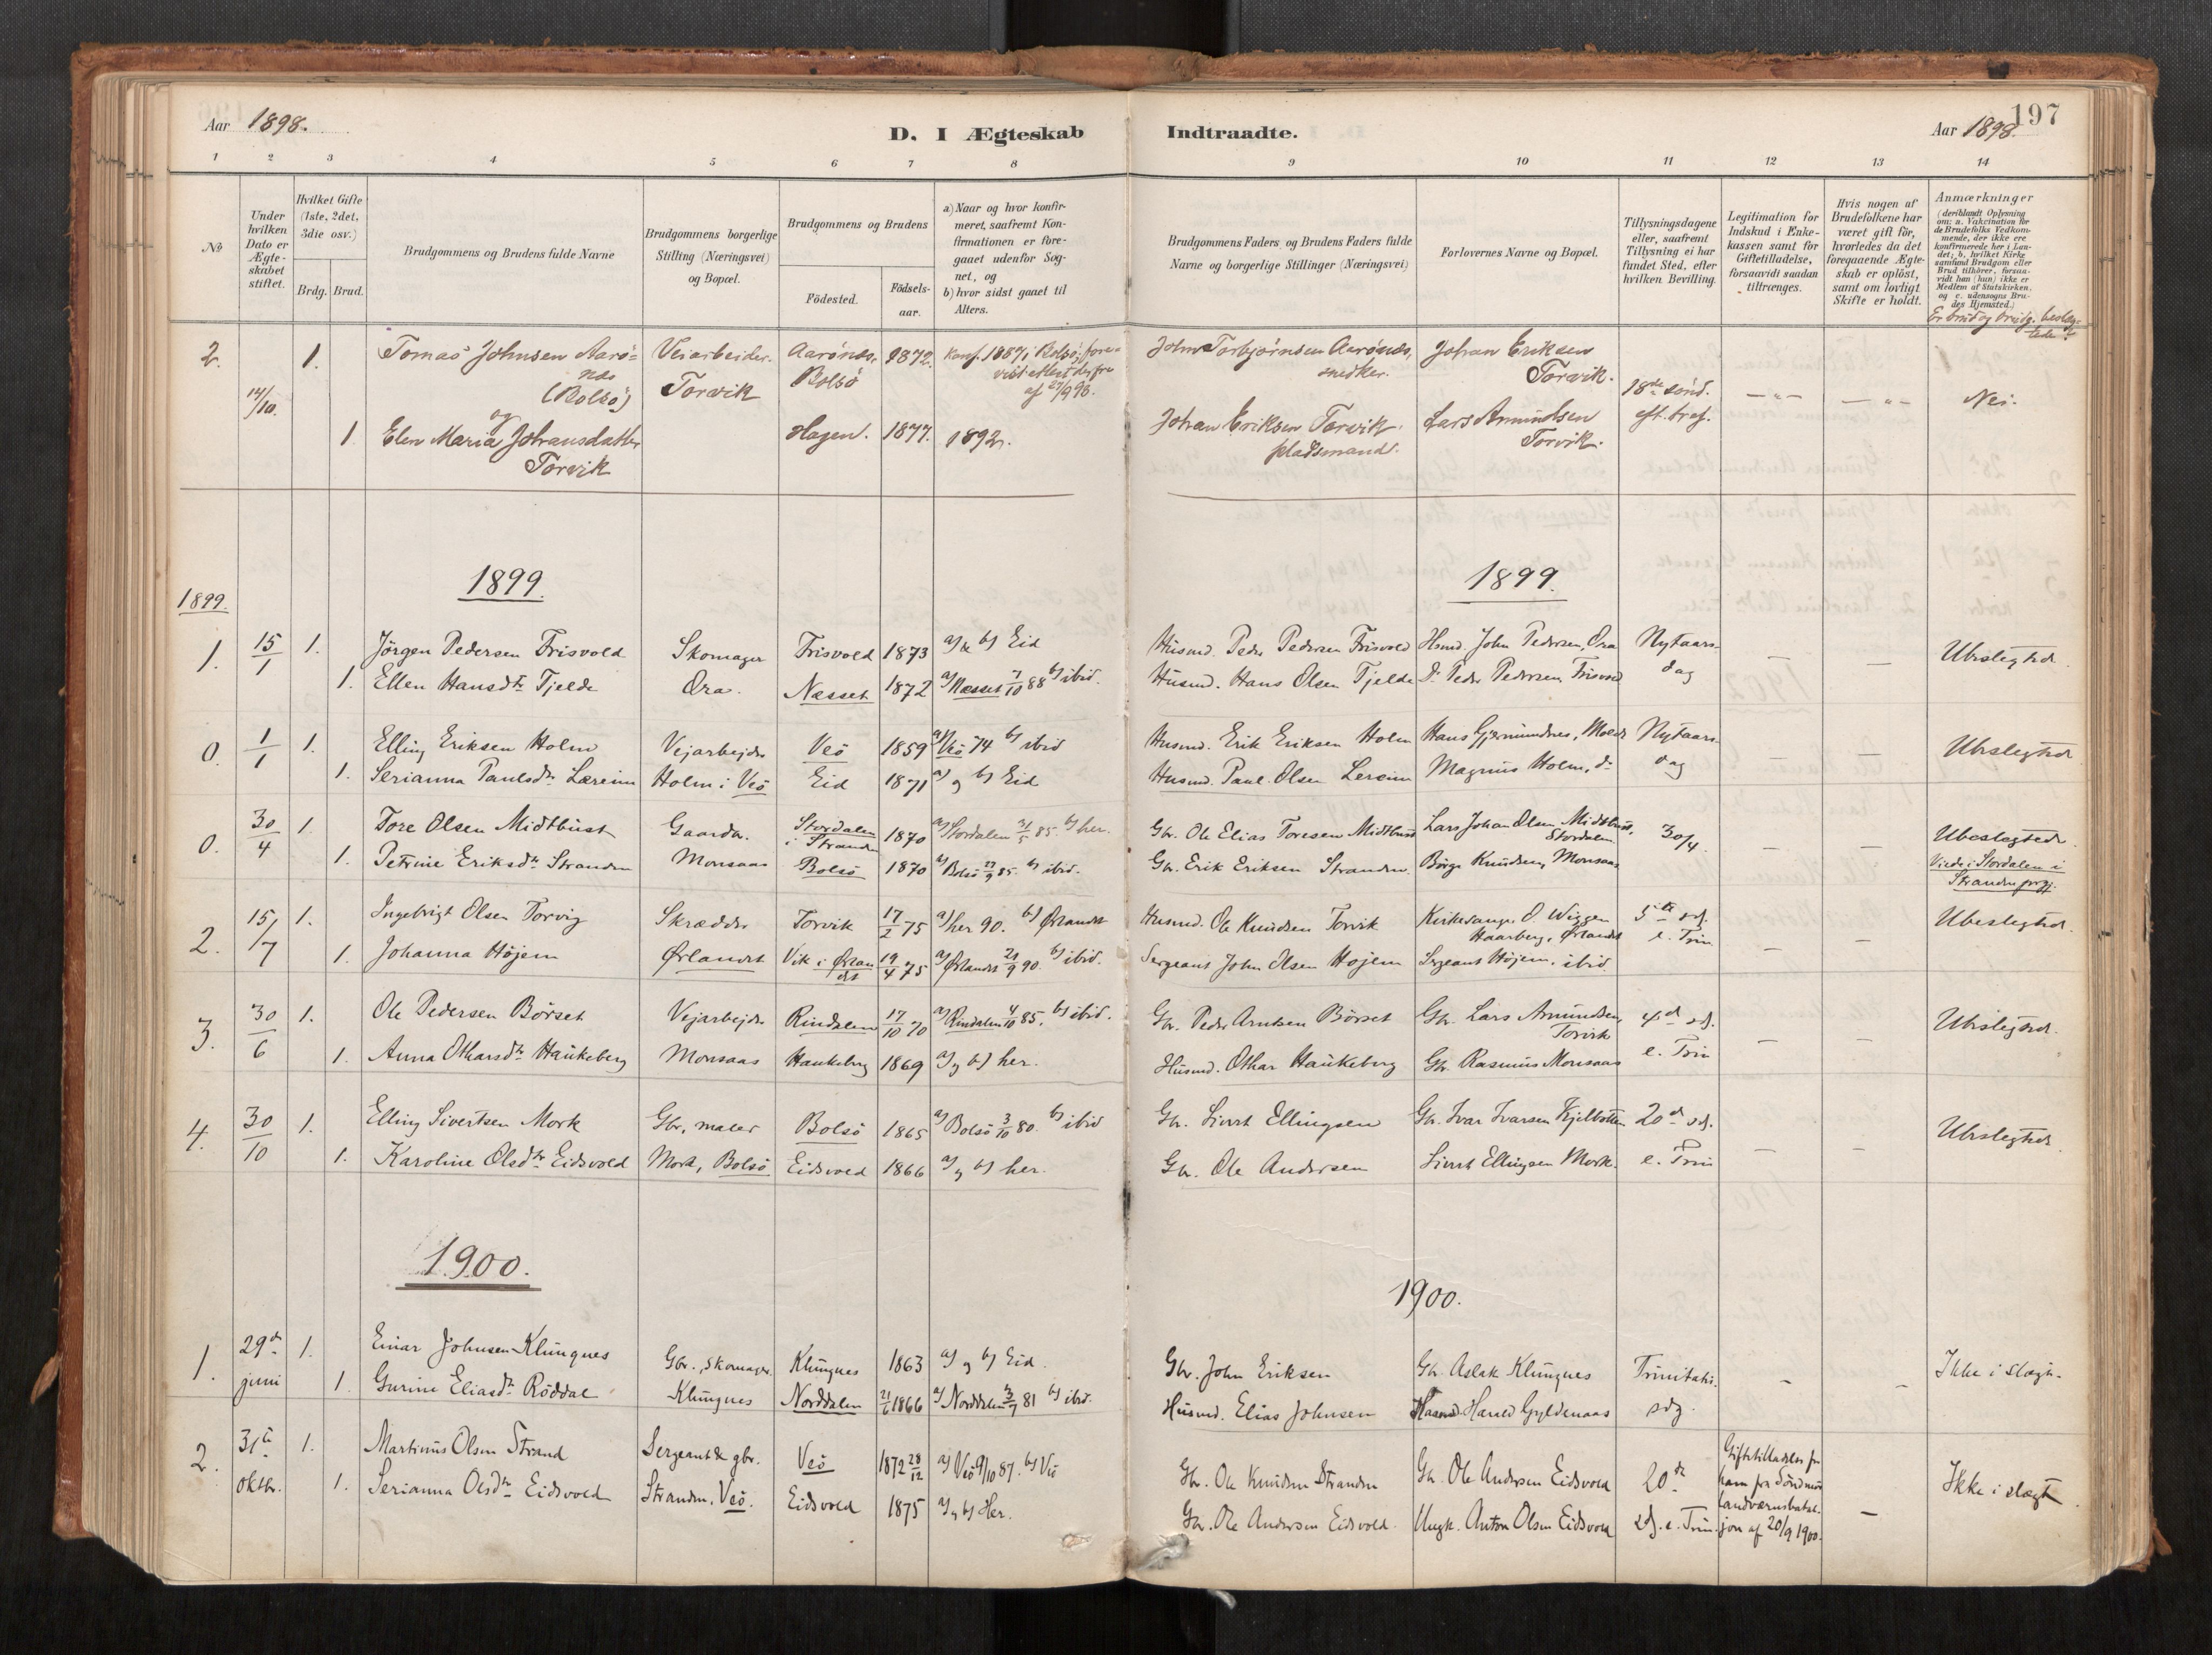 Aar 1898.
D. I Ægteskab
Indtraadte.
197
Aar 1898.
1 2 3 4 5 6 7 8 9 10 11 12 13 14
No
Under hvilken Dato er Ægteskabet stiftet.
Hvilket Gifte (1ste, 2det, 3die osv.)
Brdg. Brud.
Brudgommens og Brudens fulde Navne
Brudgommens borgerlige Stilling (Næringsvei) og Bopæl.
Brudgommens og Brudens
Födested.
Födsels-aar.
a) Naar og hvor konfirmeret, saafremt Konfirmationen er foregaaet udenfor Sognet, og b) hvor sidst gaaet til Alters.
Brudgommens Faders og Brudens Faders fulde Navne og borgerlige Stillinger (Næringsvei)
Forlovernes Navne og Bopæl.
Tillysningsdagene eller, saafremt Tillysning ei har fundet Sted, efter hvilken Bevilling.
Legitimation for Indskud i Enkekassen samt for Giftetilladelse, forsaavidt saadan tiltrænges.
Hvis nogen af Brudefolkene har været gift för, hvorledes da det foregaaende Ægteskab er oplöst, samt om lovligt Skifte er holdt.
Anmærkninger
(deriblandt Oplysning om: a. Vakcination for de Brudefolks Vedkommende, der ikke ere konfirmerede her i Landet; b. hvilket Kirkesamfund Brudgom eller Brud tilhörer, forsaavidt han (hun) ikke er Medlem af Statskirken, og c. udensogns Brudes Hjemsted.)
Er brud og brudg. beslægtede?
2. 14/10. 1. Tomas Johnsen Aarönes (Bolsö) Veiarbeider. Torvik Aarönes, Bolsö 1872. Konf. 1887 i Bolsö, John Torbjørnsen Aarönes, snedker. Johan Eriksen Torvik. 18de sönd. eft. tref. —"— —"— Nei.
og
1. Elen Maria Johansdatter Torvik Hagen. 1877. 1892. Johan Eriksen Torvik. pladsmand. Lars Amundsen Torvik.
1899.
1899.
1899.
1. 15/1 1. Jörgen Pedersen Frisvold Skomager Frisvold 1873 a) & b) Eid Husmd. Peder Pedersen Frisvold Hsmd. John Pedersen, Ora Nytaarsdag — — Ubeslegtede.
1. Ellen Hansdtr Tjelde Ora. Nesset 1872 a) Nesset 7/10 88 b) ibid. Husmd. Hans Olsen Tjelde Do Peder Pedersen Frisvold
0. 1/1 1. Elling Eriksen Holm Vejarbejder Veö 1859 a) Veö 74 b) ibid Husmd. Erik Eriksen Holm Hans Gjermundnes, Molde Nytaarsdag — — Ubeslegtede
1. Serianna Paulsdtr Læreim Holm i Veö Eid 1871 a) og b) Eid Husmd. Paul Olsen Lereim Magnus Holm, do
0. 30/4 1. Tore Olsen Midtbust Gaardbr. Stordalen i Stranden 1870 a) Stordalen 31/5 85. b) her. Gbr. Ole Elias Toresen Midtbust Lars Johan Olsen Midtbust, Stordalen 30/4. — — Ubeslegtede.
1. Petrine Eriksdtr Stranden Monsaas Bolsö 1870 a) Bolsö 27/9 85. b) ibid. Gbr. Erik Eriksen Stranden. Börge Knudsen, Monsaas Viede i Stordalen i Stranden prgj.
2. 15/7 1. Ingebrigt Olsen Torvig Skrædder Torvik 17/2 75 a) her 90. b) Ørlandet Husmd. Ole Knudsen Torvik Kirkesanger O. Wiggen Haarberg, Ørlandet 5te sd. e. Trin — — Ubeslegtede.
1. Johanna Höjem Ørlandet Vik i Ørlandet 19/4 75 a) Ørlandet 21/9 90. b) ibid. Sergeant John Olsen Höjem Sergeant Höjem, ibid.
3. 30/6 1. Ole Pedersen Börset Vejarbejder Rindalen 17/10 70 a) Rindalen 4/10 85. b) ibid. Gbr. Peder Arntsen Börset Gbr. Lars Amundsen, Torvik 4de sd. e. Trin — — Ubeslegtede.
1. Anna Otharsdtr Haukeberg Monsaas Haukeberg 1869 a) og b) her. Husmd. Othar Haukeberg Gbr. Rasmus Monsaas
4. 30/10 1. Elling Sivertsen Mork Gbr., maler Bolsö 1865 a) Bolsö 3/10 80. b) ibid Gbr. Sivert Ellingsen Gbr. Ivar Ivarsen Kjelbotten 20de sd. e. Trin — — Ubeslegtede
1. Karoline Olsdtr Eidsvold Mork, Bolsö Eidsvold 1866 a) og b) her. Gbr. Ole Andersen Sivert Ellingsen Mork.
1900.
1900.
1. 29de juni 1. Einar Johnsen Klungnes Gbr., skomager Klungnes 1863 a) og b) Eid. Gbr. John Eriksen Gbr. Aslak Klungnes Trinitatis sdg. — — Ikke i slægt.
1. Gurine Eliasdtr Röddal Klungnes Norddalen 21/6 1866 a) Norddalen 3/7 81 b) ibid. Husmd. Elias Johnsen Harald Gyldenaas
2. 31te oktbr. 1. Martinus Olsen Strand Sergeant & gbr. Veö 1872 28/12 a) Veö 9/10 87. b) Veö Gbr. Ole Knudsen Stranden Gbr. Ole Andersen Eidsvold 20de sd. e. Trin. Giftetilladelse for ham fra Söndmör landværnsbataljon af 20/9 1900. — Ikke i slægt.
1. Serianna Olsdtr Eidsvold Stranden, Veö. Eidsvold 1875 a) og b) Her. Gbr. Ole Andersen Eidsvold. Ungk. Anton Olsen Eidsvold